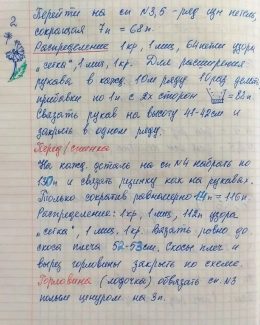 2
Перейти на сп N3,5 - ряд изн петель,
сокращая 7п = 68п.
Распределение 1кр, 1 изн, 64 петли узора
"сетка", 1 изн, 1 кр. Для расширения
рукава в кажд. 10м ряду 10 раз делать
прибавки по 1п. с 2х сторон = 88п
Связать рукав на высоту 41-42см и
закрыть в одном ряду.
Перед/спинка
На кажд. деталь на сп N4 набрать по
130п и связать резинку как на рукавах.
Только сократив равномерно 14п = 116п.
Распределение: 1 кр, 1 изн, 112п узора
"сетка", 1 изн, 1 кр. Вязать ровно до
скоса плеча 52-53см. Скосы плеч и
вырез горловины закрыть по схеме.
Горловина (лодочка) обвязать сп. N3
полым шнуром на 3п.